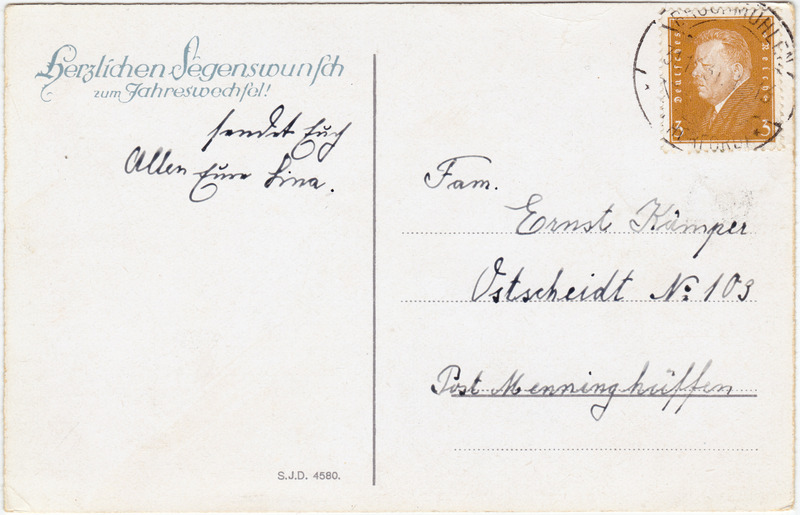 Herzlichen Segenswunsch
zum Jahreswechsel!
sendet Euch
Allen Eure Lina.
S.J.D. 4580.
Deutsches Reich
3 3
Fam.
Ernst Kämper
Ostscheidt No: 103
Post Menninghüffen